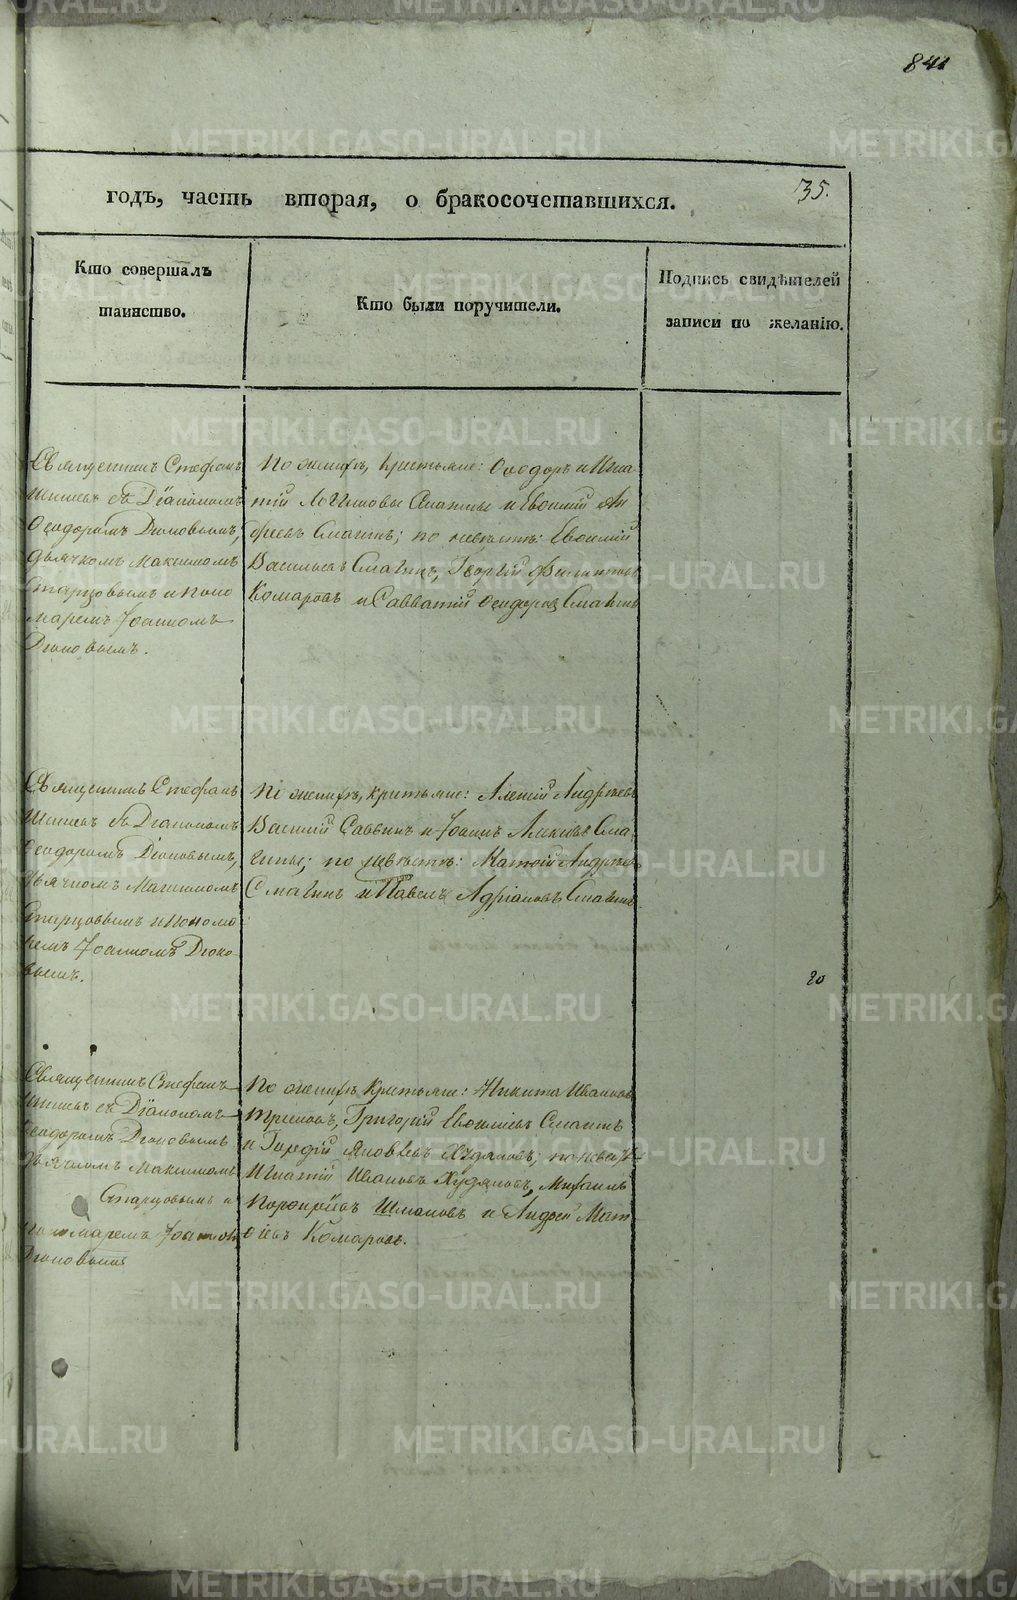 841
35.
годъ, часть вторая, о бракосочетавшихся.
Кто совершалъ
таинство.
Кто были поручители.
Подпись свидѣтелей
записи по желанію.
Священникъ Стефанъ
съ Діакономъ
Ѳеодоромъ Діоновымъ,
дьячкомъ Максимомъ
Старцовымъ и поно
маремъ Іоанномъ
Діоновымъ.
По женихѣ, крестьяне: Ѳеодоръ и Игна
тій Логиновы Смагины и Евѳимій
Смагинъ; по невѣстѣ: Евѳимій
Васильевъ Смагинъ, Георгій Филиповъ
Комаровъ и Савватій Ѳеодоровъ Смагинъ
Священникъ Стефанъ
съ Діакономъ
Ѳеодоромъ Діоновымъ,
дьячкомъ Максимомъ
Старцовымъ и Поно
ремъ Іоанномъ Діоно
вымъ.
По женихѣ, крестьяне: Алексій Андреевъ
Василій Саввинъ и Іоаннъ Сма
гины; по невѣстѣ: Матѳій Андреевъ
Смагинъ и Павелъ Адріановъ Смагинъ.
20
Священникъ Стефанъ
съ Діакономъ
Ѳеодоромъ Діоновымъ
дьячкомъ Максимомъ
Старцовымъ и
пономаремъ Іоанномъ
Діоновымъ
По женихѣ крестьяне: Никита Ивановъ
Григорій Евѳиміевъ Смагинъ
и Гордій Яковлевъ Худяковъ; по невѣстѣ
Игнатій Ивановъ Худяковъ, Михаилъ
Порфирьевъ Шмаковъ и Андрей Мат
ѳіевъ Комаровъ.
METRIKI.GASO-URAL.RU